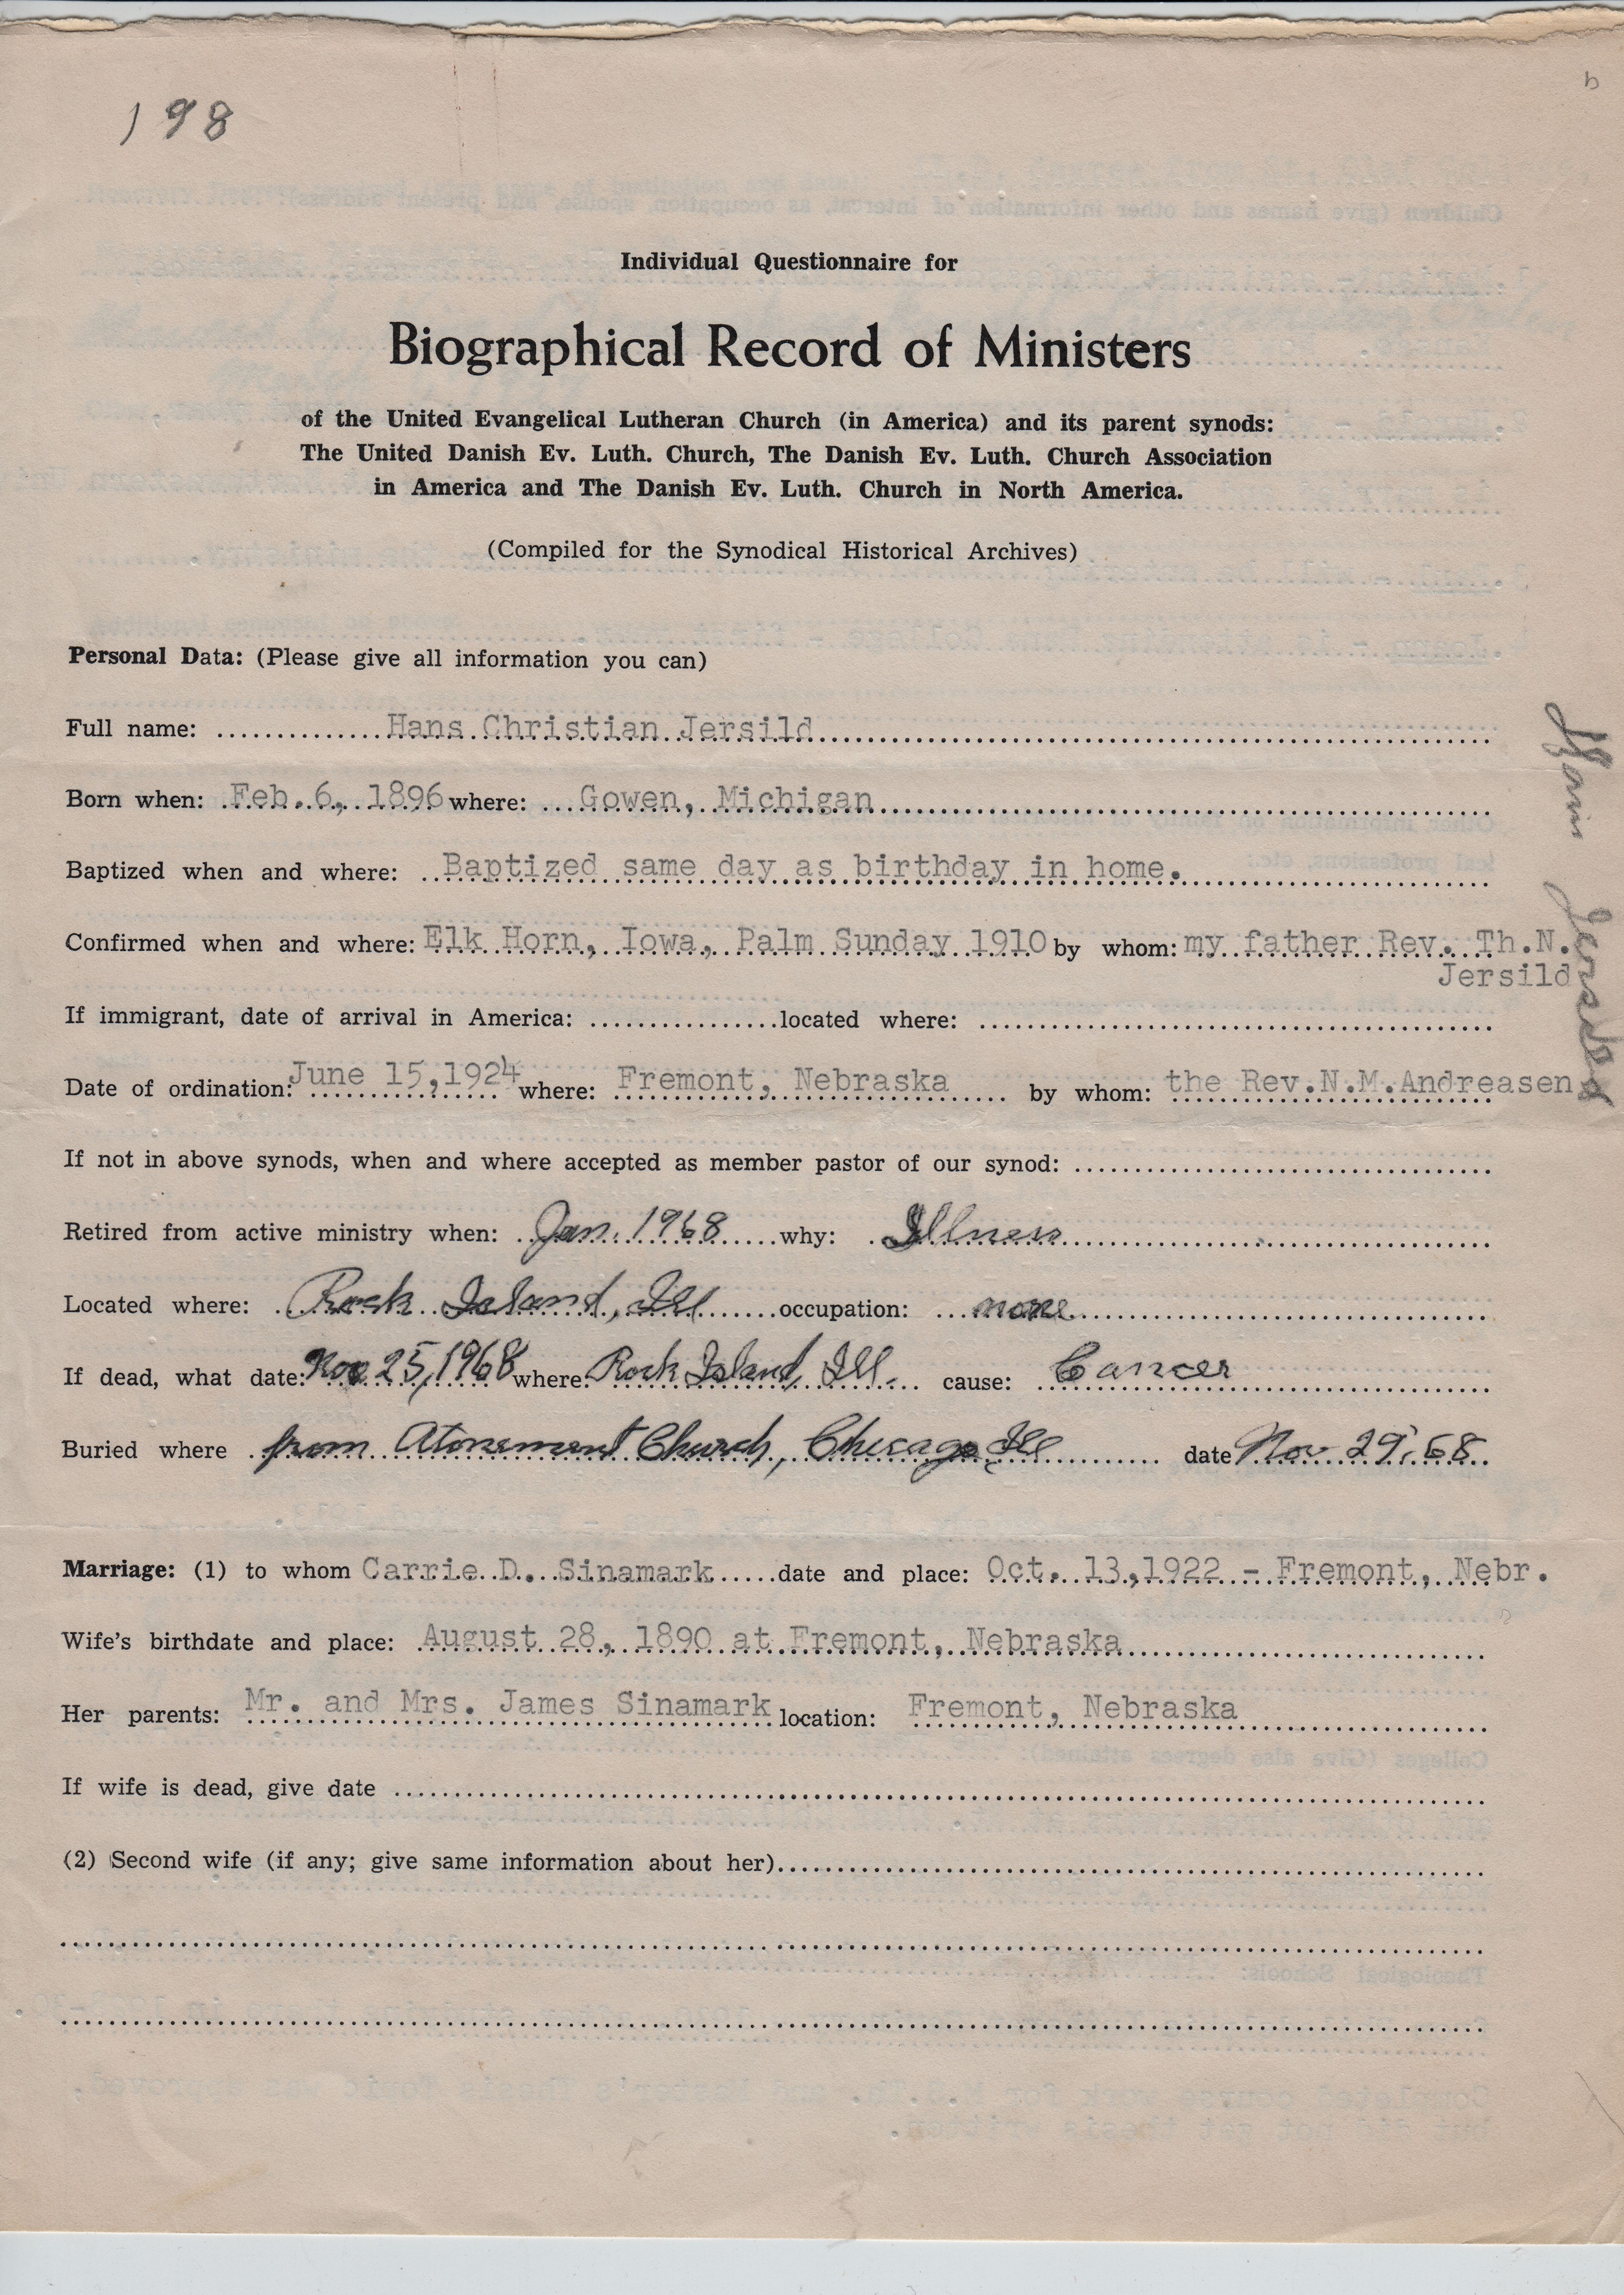 198
Individual Questionnaire for
Biographical Record of Ministers
of the United Evangelical Lutheran Church (in America) and its parent synods:
The United Danish Ev. Luth. Church, The Danish Ev. Luth. Church Association
in America and The Danish Ev. Luth. Church in North America.
(Compiled for the Synodical Historical Archives)
Personal Data: (Please give all information you can)
Full name: Hans Christian Jersild
Born when: Feb. 6, 1896 where: Gowen, Michigan
Baptized when and where: Baptized same day as birthday in home.
Confirmed when and where: Elk Horn, Iowa, Palm Sunday 1910 by whom: my father Rev. Th.N.
Jersild
If immigrant, date of arrival in America: located where:
Date of ordination: June 15,1924 where: Fremont, Nebraska by whom: the Rev.N.M.Andreasen
If not in above synods, when and where accepted as member pastor of our synod:
Retired from active ministry when: Jan. 1968 why: Illness
Located where: Rock Island, Ill occupation: none
If dead, what date: Nov 25, 1968 where: Rock Island, Ill. cause: Cancer
Buried where from Atonement Church, Chicago Ill date Nov 29, 68
Marriage: (1) to whom Carrie D. Sinamark date and place: Oct. 13,1922 - Fremont, Nebr.
Wife's birthdate and place: August 28, 1890 at Fremont, Nebraska
Her parents: Mr. and Mrs. James Sinamark location: Fremont, Nebraska
If wife is dead, give date
(2) Second wife (if any; give same information about her)
Hans Jersild